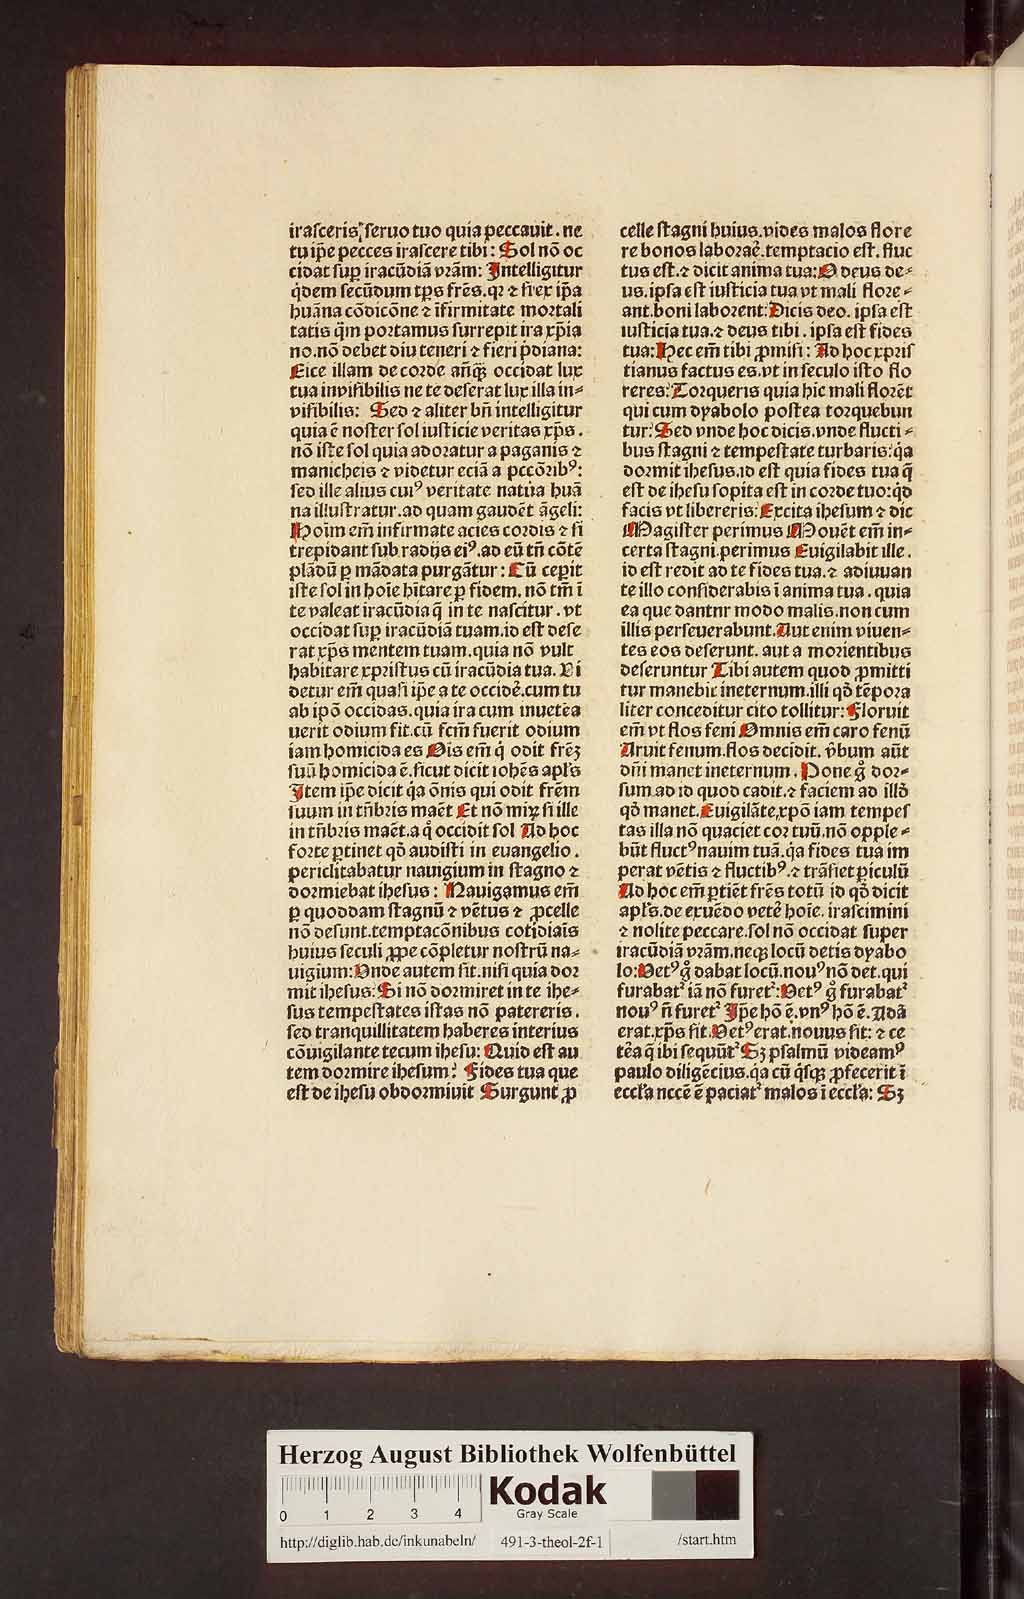 irasceris seruo tuo quia peccauit. ne
tu ip̄e pecces irascere tibi: Sol nō oc
cidat suꝑ iracūdiā vr̄am: Intelligitur
q̇dem secūdum tp̄s fr̄es. qꝛ ⁊ ip̄a
hūana cōdicōne ⁊ īfirmitate mortali
tatis q̄m portamus surrepit ira xp̄ia
no. nō debet diu teneri ⁊ fieri p̄diana:
Eice illam de corde an̄qꝫ occidat lux
tua invisibilis ne te deserat lux illa in⸗
visibilis: Sed ⁊ aliter bn̄ intelligitur
quia ē noster sol iusticie veritas xp̄s.
nō iste sol quia adoratur a paganis ⁊
manicheis ⁊ videtur eciā a pcc̄orib⁹:
sed ille alius cui⁹ veritate natura huā
na illustratur. ad quam gaudēt āgeli:
Hoīm em̄ infirmate acies cordis ⁊ si
trepidant sub radijs ei⁹. ad eū tn̄ cōtē
plādū ꝑ mādata purgātur: Cū ceperit
iste sol in hoīe hītare ꝑ fidem. nō tm̄ ī
te valeat iracūdia q̄ in te nascitur. vt
occidat suꝑ iracūdiā tuam. id est dese
rat xp̄s mentem tuam. quia nō vult
habitare xpristus cū iracūdia tua. Vi
detur em̄ quasi ip̄e a te occidere. cum tu
ab ip̄o occidas. quia ira cum inuetēa
uerit odium fit. cū fcm̄ fuerit odium
iam homicida es Ois em̄ q̇ odit fr̄eꝫ
suū homicida ē. sicut dicit iohēs apl̄s
Item ip̄e dicit qa ōnis qui odit fr̄em
suum in tn̄bris maēt Et nō miꝝ si ille
in tn̄bris maēt. a q̊ occidit sol Ad hoc
forte ꝑtinet qd̄ audisti in euangelio.
periclitabatur nauigium in stagno ⁊
dormiebat ihesus: Nauigamus em̄
ꝑ quoddam stagnū ⁊ vētus ⁊ ꝓcelle
nō desunt. temptacōnibus cotidiais
huius seculi ꝓpe cōpletur nostrū na⸗
uigium: Unde autem fit. nisi quia dor
mit ihesus: Si nō dormiret in te ihe⸗
sus tempestates istas nō patereris.
sed tranquillitatem haberes interius
cōuigilante tecum ihesu: Quid est au
tem dormire ihesum: Fides tua que
est de ihesu obdormiuit Surgunt ꝓ
celle stagni huius. vides malos flore
re bonos laborare. temptacio est. fluc
tus est. ⁊ dicit anima tua: O deus de⸗
us. ipsa est iusticia tua vt mali flore⸗
ant. boni laborent: Dicis deo. ipsa est
iusticia tua. ⁊ deus tibi. ipsa est fides
tua: Hec em̄ tibi ꝓmisi: Ad hoc xpris
tianus factus es. vt in seculo isto flo
reres: Torqueris quia hic mali florēt
qui cum dyabolo postea torquebun
tur: Sed vnde hoc dicis. vnde flucti⸗
bus stagni ⁊ tempestate turbaris: q̇a
dormit ihesus. id est quia fides tua q̄
est de ihesu sopita est in corde tuo: qd̄
facis vt libereris: Excita ihesum ⁊ dic
Magister perimus Mouēt em̄ in⸗
certa stagni. perimus Euigilabit ille.
id est redit ad te fides tua. ⁊ adiuuan
te illo considerabis ī anima tua. quia
ea que dantnr modo malis. non cum
illis perseuerabunt. Aut enim viuen⸗
tes eos deserunt. aut a morientibus
deseruntur Tibi autem quod ꝓmitti
tur manebit ineternum. illi qd̄ tēpora
liter conceditur cito tollitur: Floruit
em̄ vt flos feni Omnis em̄ caro fenū
Aruit fenum. flos decidit. v̄bum aūt
dn̄i manet ineternum. Pone g̊ dor⸗
sum. ad id quod cadit. ⁊ faciem ad illd̄
qd̄ manet. Euigilāte. xp̄o iam tempes
tas illa nō quaciet cor tuū. nō opple⸗
būt fluct⁹ nauim tuā. q̇a fides tua im
perat vētis ⁊ fluctib⁹. ⁊ trāsiet ꝑiculū
Ad hoc em̄ ꝑtiēt fr̄es totū id qd̄ dicit
apl̄s. de exuēdo vetere hoīe. irascimini
⁊ nolite peccare. sol nō occidat super
iracūdiā vr̄am. neqꝫ locū detis dyabo
lo: Vet⁹ g̊ dabat locū. nou⁹ nō det. qui
furabat᷑ iā nō furet᷑: Vet⁹ g̊ furabat᷑
nou⁹ n̄ furet᷑ Ip̄e hō ē. vn⁹ hō ē. Adā
erat. xp̄s fit. Vet⁹ erat. nouus fit: ⁊ ce
tēa q̄ ibi sequūt᷑ Sꝫ psalmū videam⁹
paulo diligēcius. q̇a cū q̇sqꝫ ꝓfecerit ī
eccl̄a nccē ē paciat᷑ malos ī eccl̄a: Sꝫ
Herzog August Bibliothek Wolfenbüttel
0 1 2 3 4
Kodak
Gray Scale
http://diglib.hab.de/inkunabeln/ 491-3-theol-2f-1 /start.htm